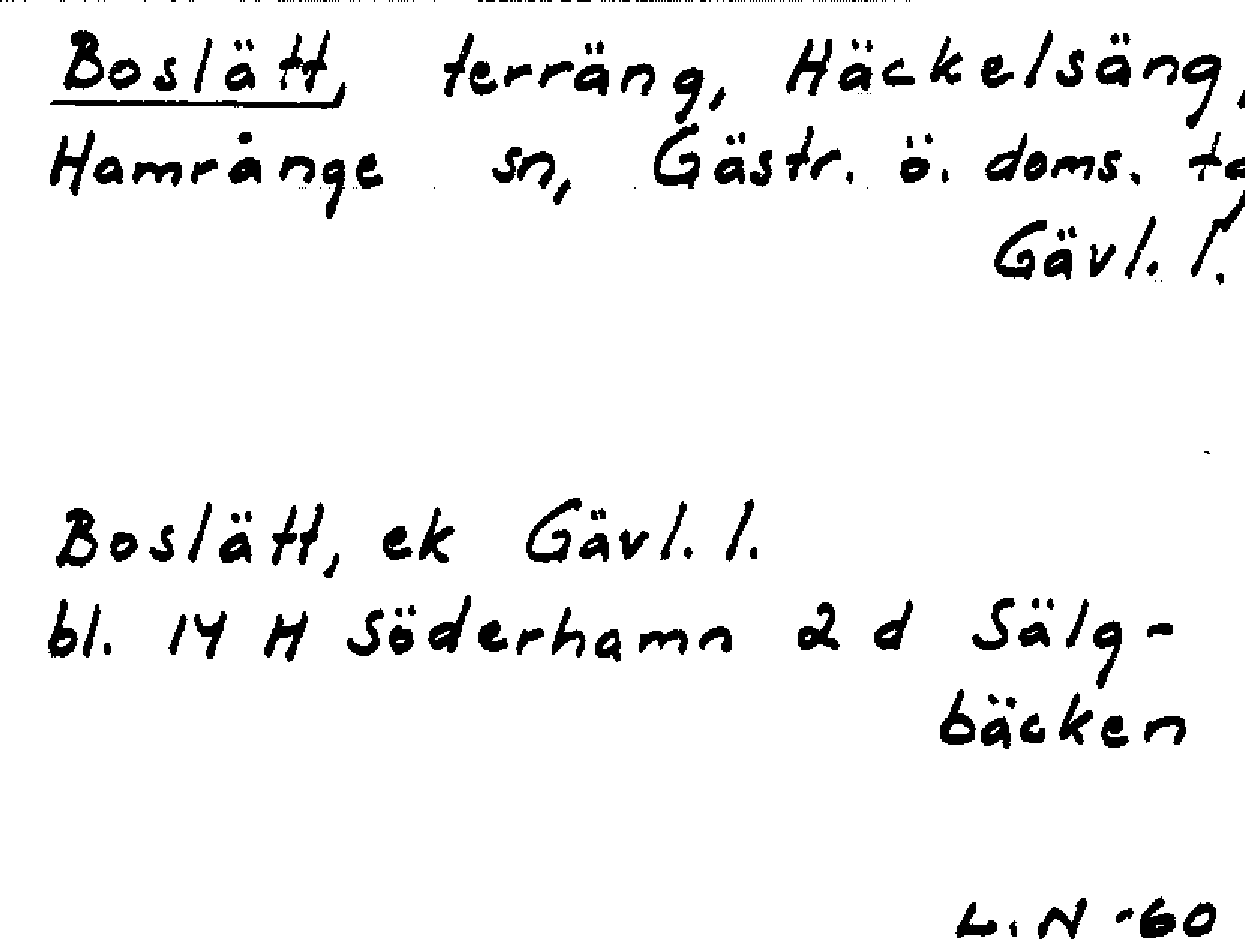 Boslätt, terräng, Häckelsäng,
Hamrånge sn, Gästr. ö. doms. tg
Gävl. l.
Boslätt, ek Gävl. l.
bl. 14 H Söderhamn 2 d Sälg-
bäcken
L. N -60